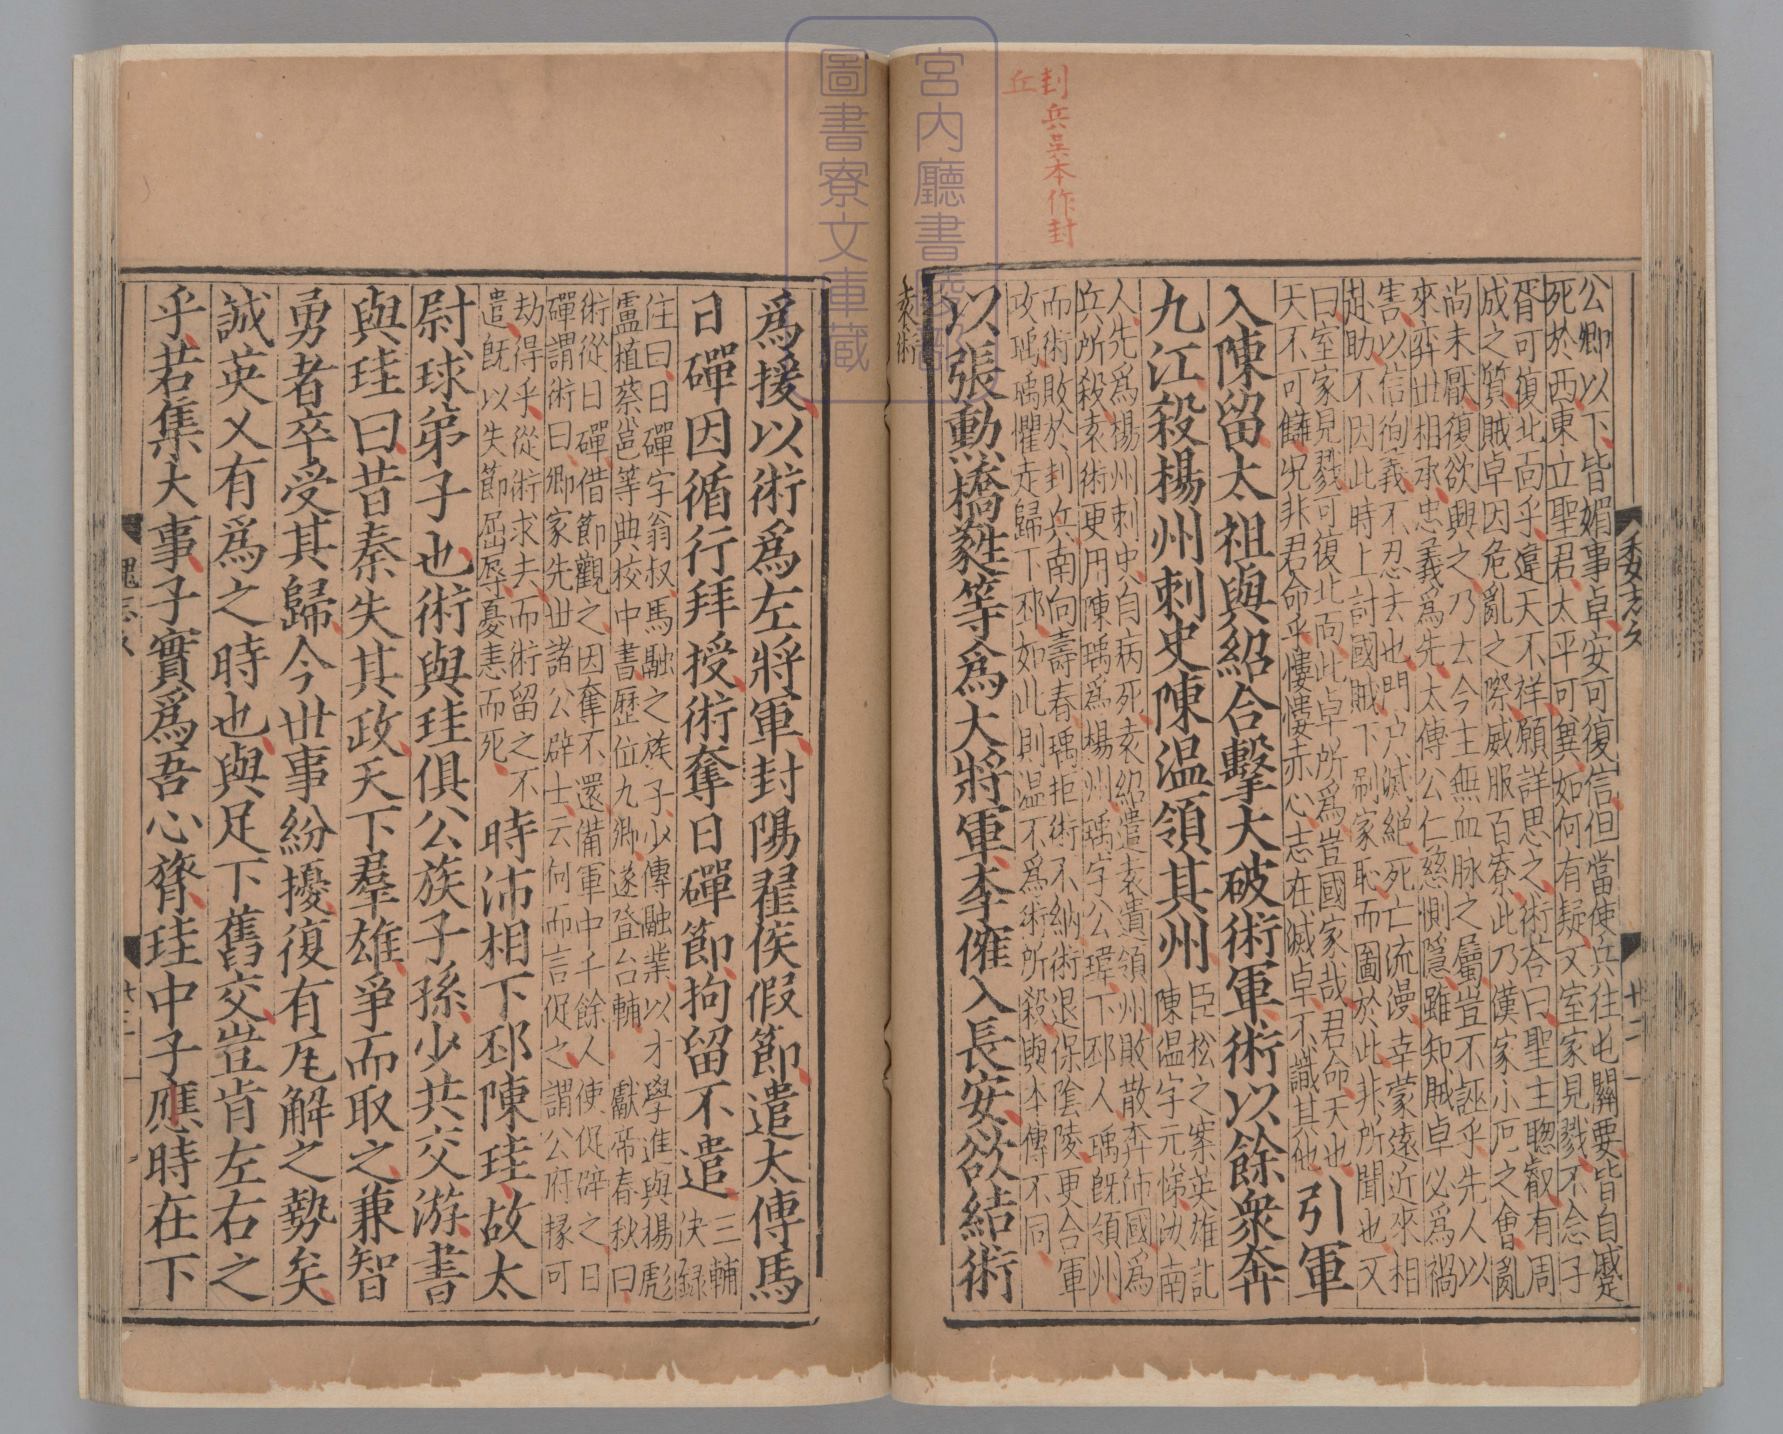 封兵吴本作封
丘
宮内廳書陵部
圖書寮文庫藏
公卿以下皆媚事卓安可復信但當使兵往屯關要皆自蹙
死於西東立聖君太平可冀如何有疑又室家見戮不念子
胥可復北面乎違天不祥願詳思之術荅曰聖主聦叡有周
成之質賊卓因危亂之際威服百寮此乃漢家小厄之會亂
尚未厭復欲興之乃云今主無血脉之屬豈不誣乎先人以
來弈世相承忠義爲先太傅公仁慈惻隱雖知賊卓必爲禍
害以信徇義不忍去也門戸滅絶死亡流漫幸蒙遠近來相
赴助不因此時上討國賊下刷家恥而圖於此非所聞也又
曰室家見戮可復北面此卓所爲豈國家哉君命天也
天不可讎况非君命乎慺慺赤心志在滅卓不識其他
引軍
入陳留太祖與紹合擊大破術軍術以餘衆奔
九江殺揚州刺史陳温領其州
臣松之案英雄記
陳温字元悌汝南
人先爲揚州刺史自病死袁紹遣袁遺領州敗散奔沛國爲
兵所殺袁術更用陳瑀爲揚州瑀字公瑋下邳人瑀旣領州
而術敗於封兵南向壽春瑀拒術不納術退保陰陵更合軍
攻瑀瑀懼走歸下邳如此則温不爲術所殺與本傳不同
以張勲橋蕤等爲大將軍李傕入長安欲結術
爲援以術爲左將軍封陽翟侯假節遣太傅馬
日磾因循行拜授術奪日磾節拘留不遣
三輔
決録
注曰日磾字翁叔馬融之族子少傳融業以才學進與楊彪
盧植蔡邕等典校中書歷位九卿遂登台輔 獻帝春秋曰
術從日磾借節觀之因奪不還備軍中千餘人使促辟之日
磾謂術曰卿家先世諸公辟士云何而言促之謂公府掾可
劫得乎從術求去而術留之不
遣旣以失節屈辱憂恚而死
時沛相下邳陳珪故太
尉球弟子也術與珪俱公族子孫少共交游書
與珪曰昔秦失其政天下羣雄爭而取之兼智
勇者卒受其歸今世事紛擾復有瓦解之勢矣
誠英乂有爲之時也與足下舊交豈肯左右之
乎若集大事子實爲吾心膂珪中子應時在下